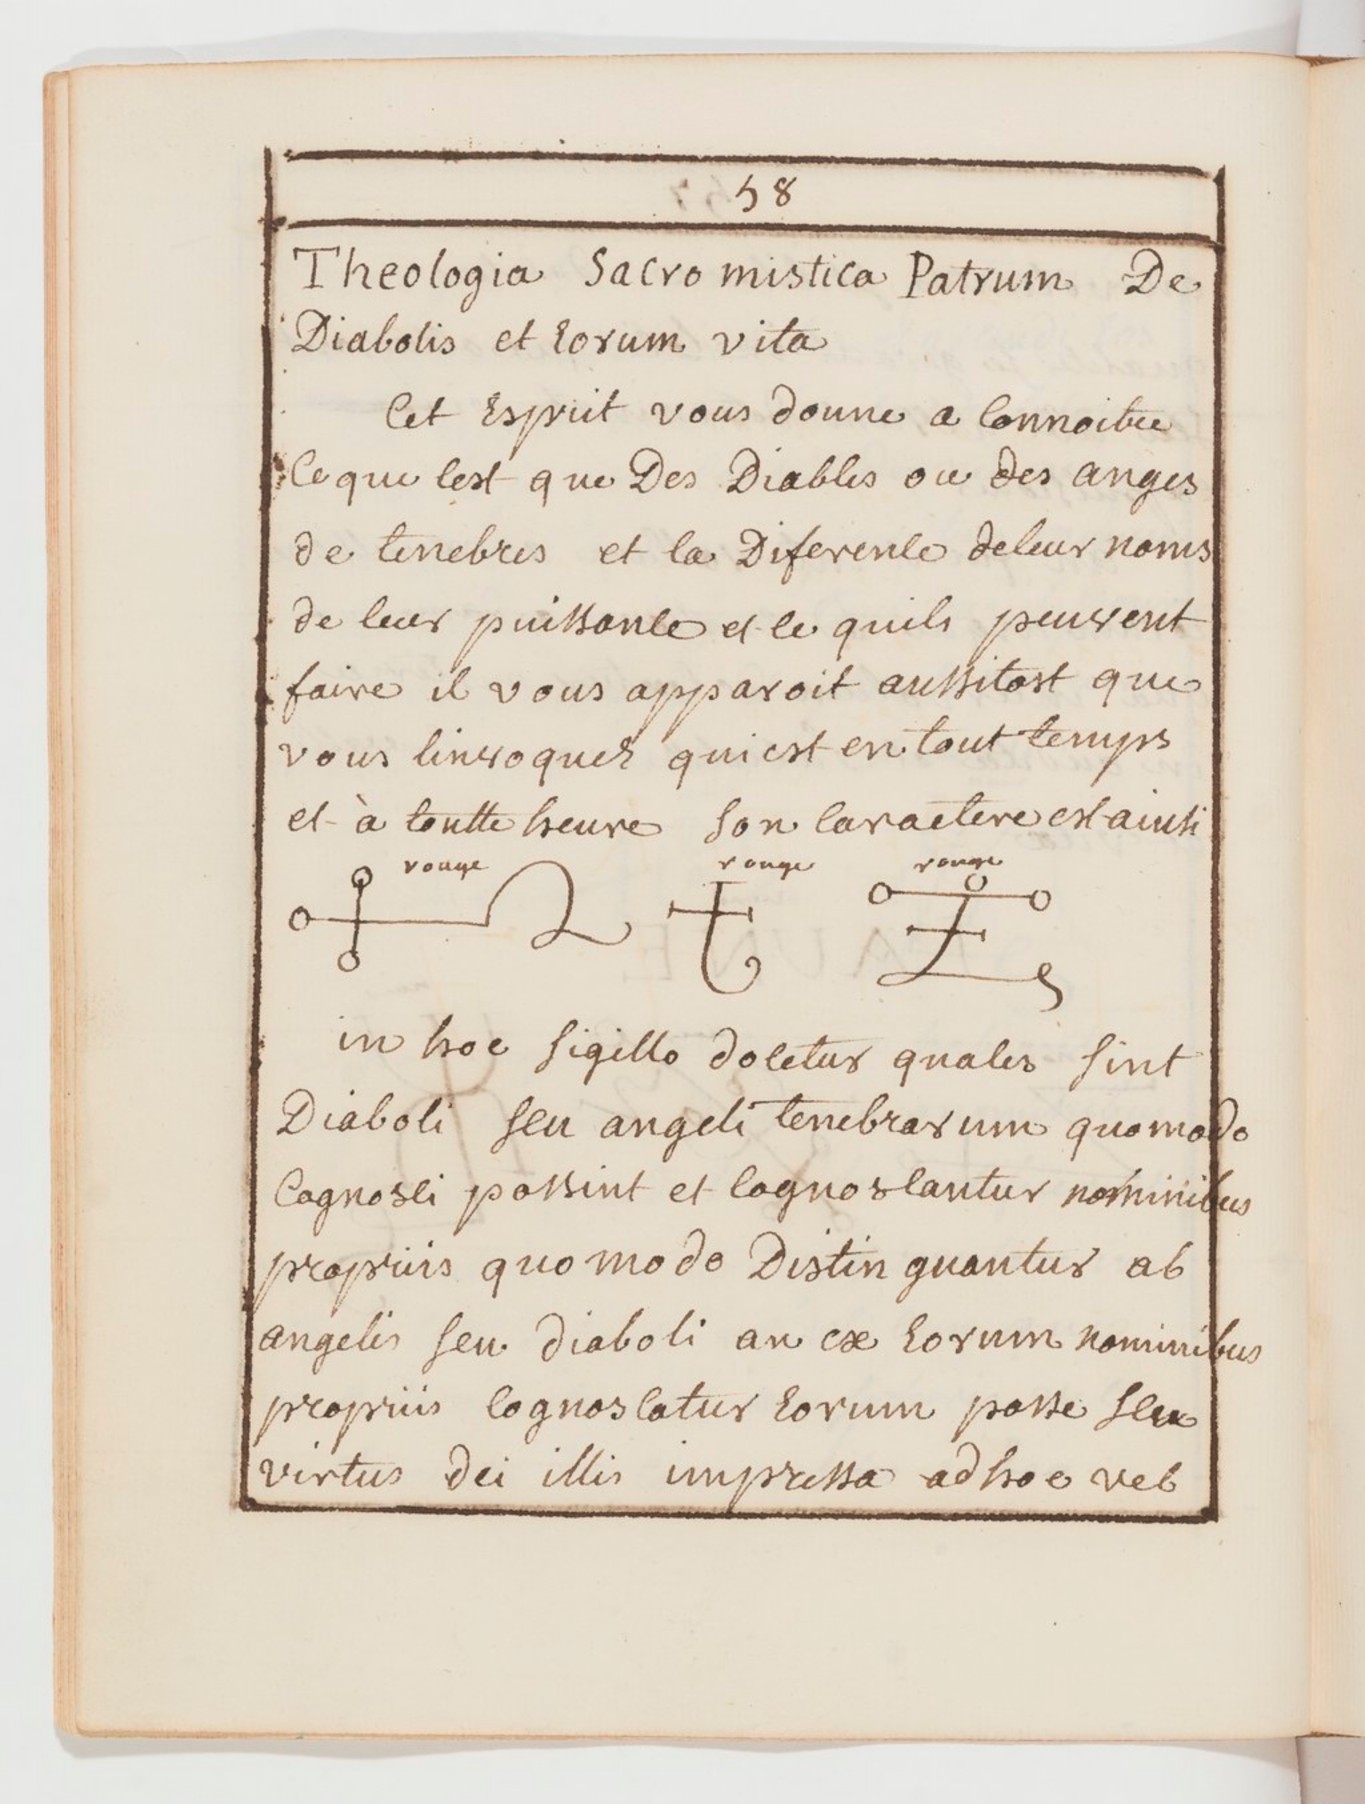 58
Theologia Sacro mistica Patrum De
Diabolis et Eorum vita
Cet Esprit vous donne a Connoitre
Ce que Cest que Des Diables ou des anges
de tenebres et la Diference de leur noms
de leur puissance et ce quils peuvent
faire il vous apparoit aussitost que
vous linvoquez qui est en tout temps
et à toutte heure son Caractere est ainsi
rouge rouge rouge
in hoc sigillo docetur quales sint
Diaboli seu angeli tenebrarum quomodo
Cognosci possint et Cognoscantur nominibus
propriis quomodo Distinguantur ab
angelis seu diaboli an ex Eorum nominibus
propriis Cognoscatur Eorum posse seu
virtus dei illis impressa ad hoc vel